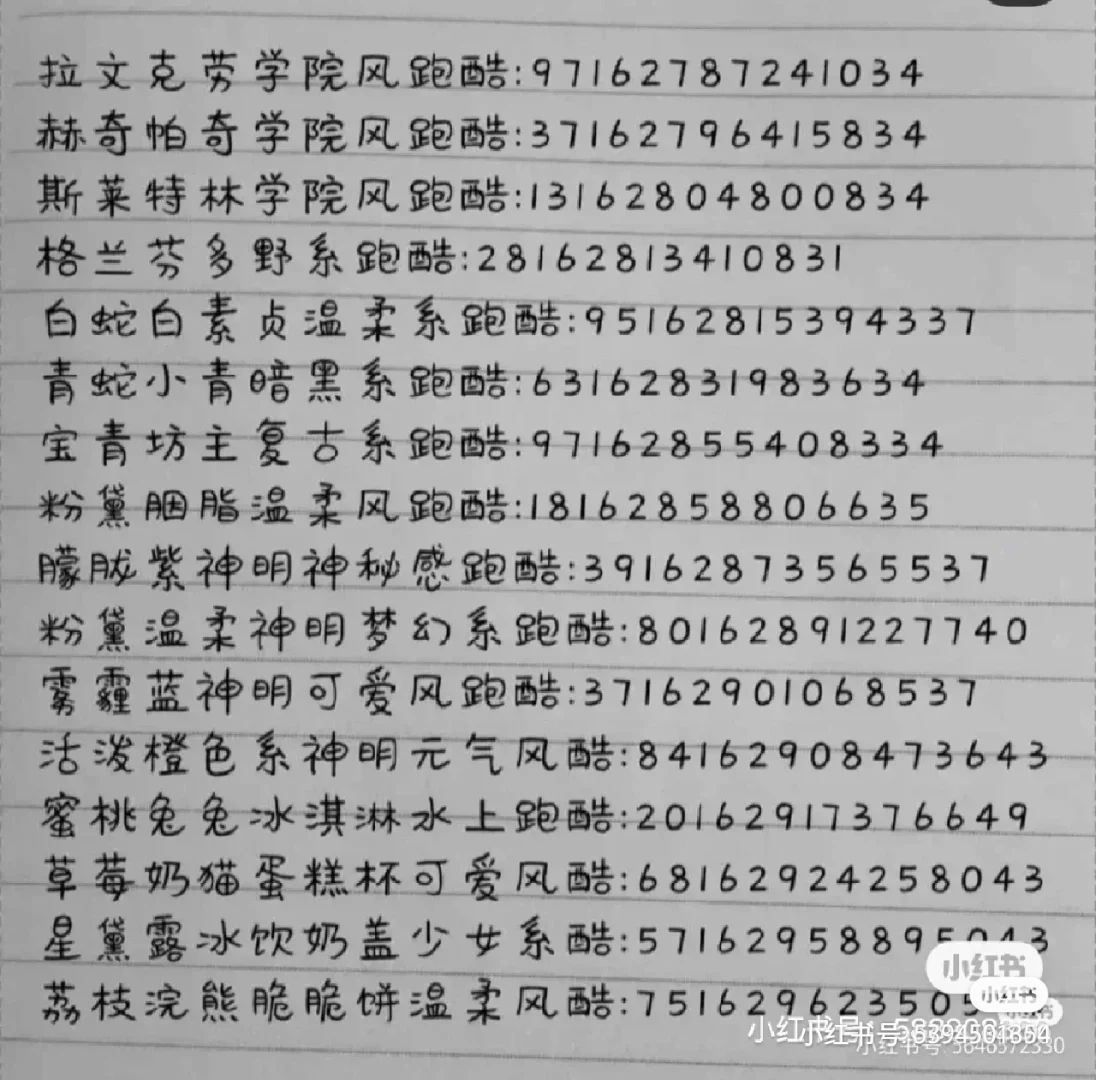 拉文克劳学院风跑酷:97162787241034
赫奇帕奇学院风跑酷:37162796415834
斯莱特林学院风跑酷:13162804800834
格兰芬多野系跑酷:28162813410831
白蛇白素贞温柔系跑酷:95162815394337
青蛇小青暗黑系跑酷:63162831983634
宝青坊主复古系跑酷:97162855408334
粉黛胭脂温柔风跑酷:18162858806635
朦胧紫神明神秘感跑酷:39162873565537
粉黛温柔神明梦幻系跑酷:80162891227740
雾霾蓝神明可爱风跑酷:37162901068537
活泼橙色系神明元气风酷:84162908473643
蜜桃兔兔冰淇淋水上跑酷:20162917376649
草莓奶猫蛋糕杯可爱风酷:68162924258043
星黛露冰饮奶盖少女系酷:57162958895043
荔枝浣熊脆脆饼温柔风酷:751629623505
小红书
小红书
小红书号:
小红书号:
小红书号: 5646572330